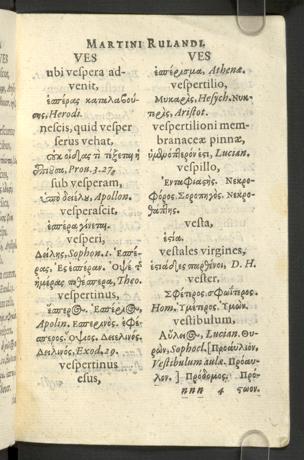 MARTINI RULANDI,
VES
ubi vespera ad-
venit,
ἑσπέρας καταλαβού-
σης, Herodi.
nescis, quid vesper
serus vehat,
οὐκ οἶδας τί τέξεται ἡ
Prou. 3. 27.
sub vesperam,
ὑπὸ δείλω, Apollon.
vesperascit,
ἑσπέρα γίνεται.
vesperi,
Δείλης, Sophon. 1. Ἑσπέ-
ρας. Ἐς ἑσπέραν. Ὀψὲ τῇ
ἡμέρας Theo.
vespertinus,
Apolin. Ἑσπερινός. ἐφέ-
σπερος. Ὄψιος. Δειελινός.
Δειλινός, Exod. 29.
vespertinus
esus,
VES
ἑσπέρισμα, Athenæ.
vespertilio,
Μυκαρὶς, Hesych. Νυκ-
τερὶς, Aristot.
vespertilioni mem-
branaceæ pinnæ,
Lucian.
vespillo,
Ἐνταφιαστής. Νεκρο-
φόρος. Σοροπηγός. Νεκρο-
θάπτης.
vesta,
ἑστία.
vestales virgines,
ἑστιάδες παρθένοι, D. H.
vester,
Σφέτερος. σφωΐτερος,
Hom. Ὑμέτερος. Ὑμῶν.
vestibulum,
Lucian. Θυ-
ρών, Sophocl. [Προαύλιον,
Vestibulum aulæ. Πρόαυ-
λον.] Πρόδομος. Πρό-
nnn 4